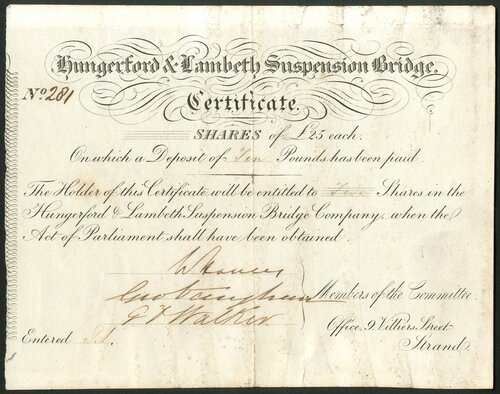 Hungerford & Lambeth Suspension Bridge.
No. 281
Certificate.
SHARES of £25 each.
On which a Deposit of Ten Pounds has been paid.
The Holder of this Certificate will be entitled to Five Shares in the
Hungerford & Lambeth Suspension Bridge Company, when the
Act of Parliament shall have been obtained.
Members of the Committee.
Walker
Office, 9 Villiers Street
Entered
Strand.